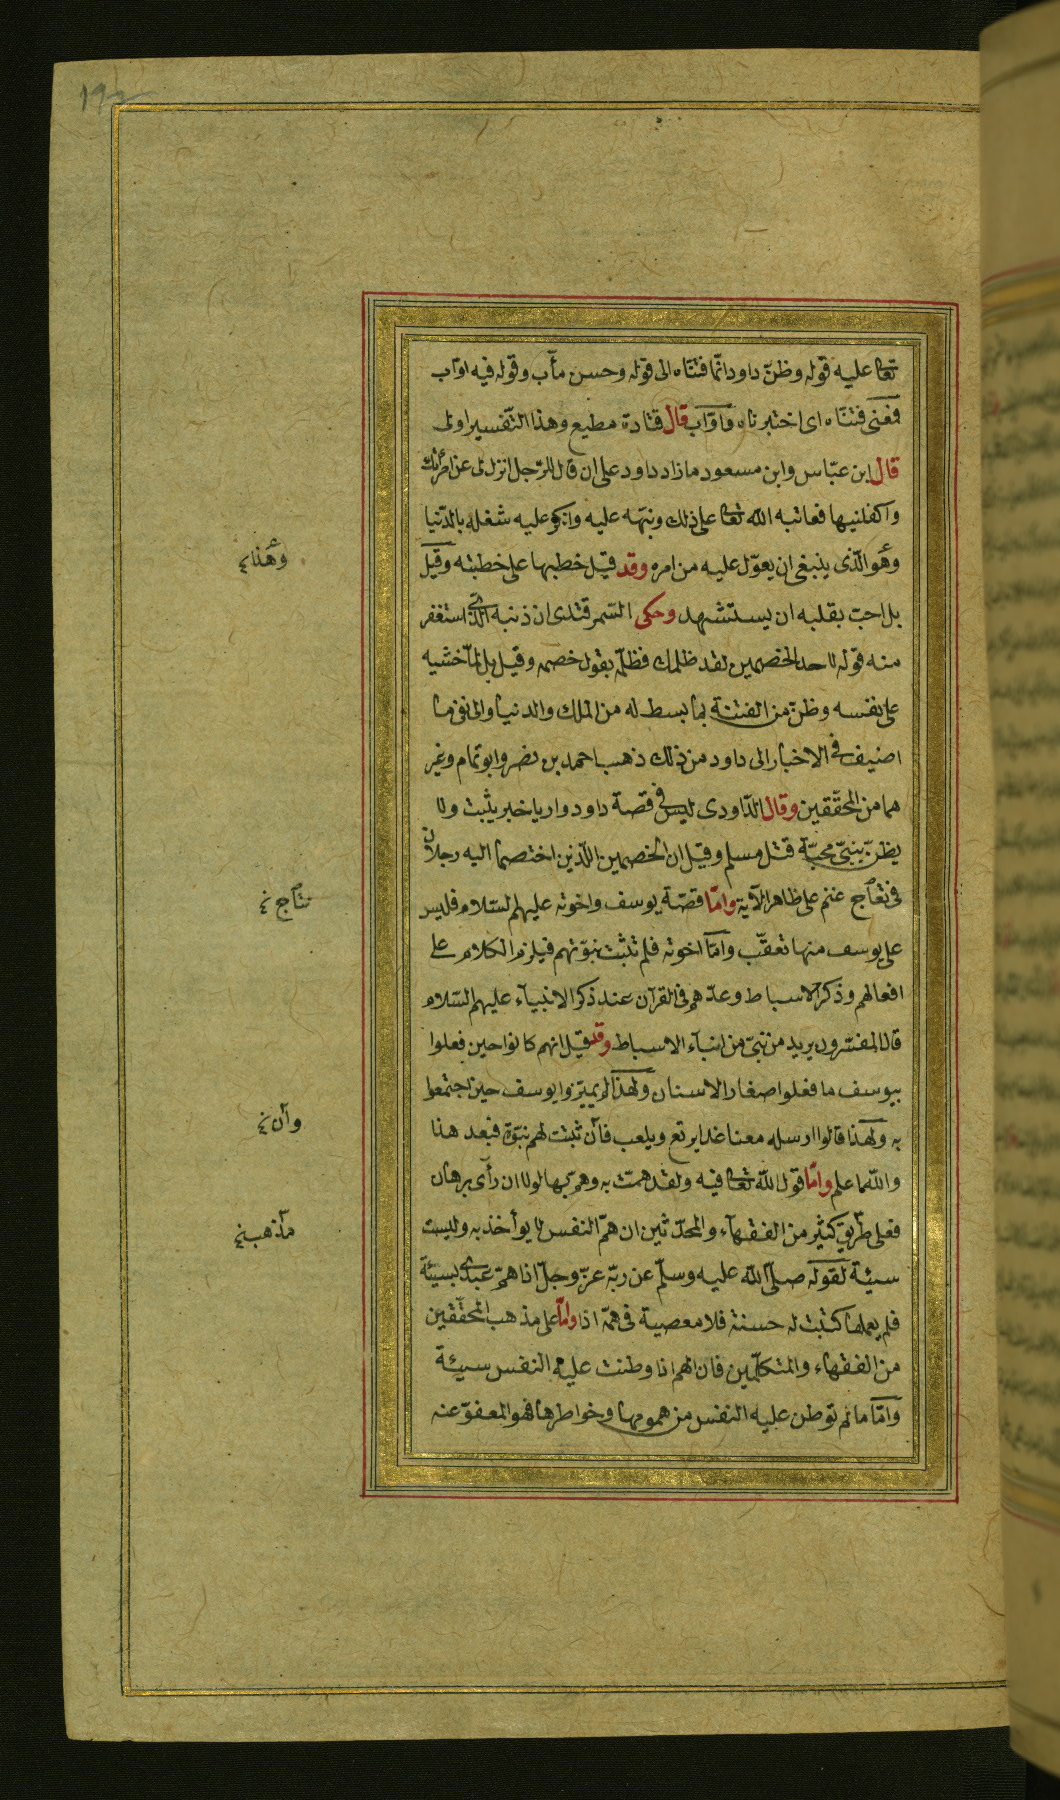 ١٩٢
تعا عليه قوله وظنّ داود انّما فتنّاه الى قوله وحسن مآب وقوله فيه اوّاب
فمعنى فتنّاه اى اختبرناه واوّاب قال قتادة مطيع وهذا التّفسير اولى
قال ابن عبّاس وابن مسعود ما زاد داود على ان قال للرّجل انزل لى عن امرأتك
واكفلنيها فعاتبه الله تعا على ذلك ونبّهه عليه وانكر عليه شغله بالدّنيا
وهو الّذى ينبغى ان يعوّل عليه من امره وقد قيل خطبها على خطبته وقيل
بل احبّ بقلبه ان يستشهد وحكى السّمرقندى ان ذنبه الّذى استغفر
منه قوله لاحد الخصمين لقد ظلمك فظلّمه بقول خصمه وقيل بل لما خشيه
على نفسه وظنّ من الفتنة بما بسط له من الملك والدنيا والى نفى ما
اضيف فى الاخبار الى داود من ذلك ذهب احمد بن نصر وابو تمام وغير
هما من المحقّقين وقال الدّاودى ليس فى قصّة داود واوريا خبر يثبت ولا
يظنّ بنبىّ محبّة قتل مسلم وقيل ان الخصمين اللّذين اختصما اليه رجلان
فى نعاج غنم على ظاهر الآية وامّا قصّة يوسف واخوته عليهم السّلام فليس
على يوسف منها تعقّب وامّا اخوته فلم تثبت نبوّتهم فيلزم الكلام على
افعالهم وذكر الاسباط وعدّهم فى القرآن عند ذكر الانبياء عليهم السّلام
قال المفسّرون يريد من نبّئ من ابناء الاسباط وقد قيل انهم كانوا حين فعلوا
بيوسف ما فعلوا صغار الاسنان ولهذا لم يميّزوا يوسف حين اجتمعوا
به ولهذا قالوا ارسله معنا غدا يرتع ويلعب فأن ثبتت لهم نبوّة فبعد هذا
والله اعلم وامّا قول الله تعا فيه ولقد همّت به وهمّ بها لولا ان رأى برهان
فعلى طريق كثير من الفقهاء والمحدّثين ان همّ النفس لا يؤاخذ به وليست
سيئة لقوله صلّى الله عليه وسلّم عن ربّه عزّ وجلّ اذا همّ عبدى بسيئة
فلم يعملها كتبت له حسنة فلا معصية فى همّه اذا وامّا على مذهب المحقّقين
من الفقهاء والمتكلّمين فان الهم اذا وطنت عليه النفس سيئة
وامّا ما لم توطن عليه النفس من همومها وخواطرها فهو المعفوّ عنه
وهذا
نتاج
وان
مذهب